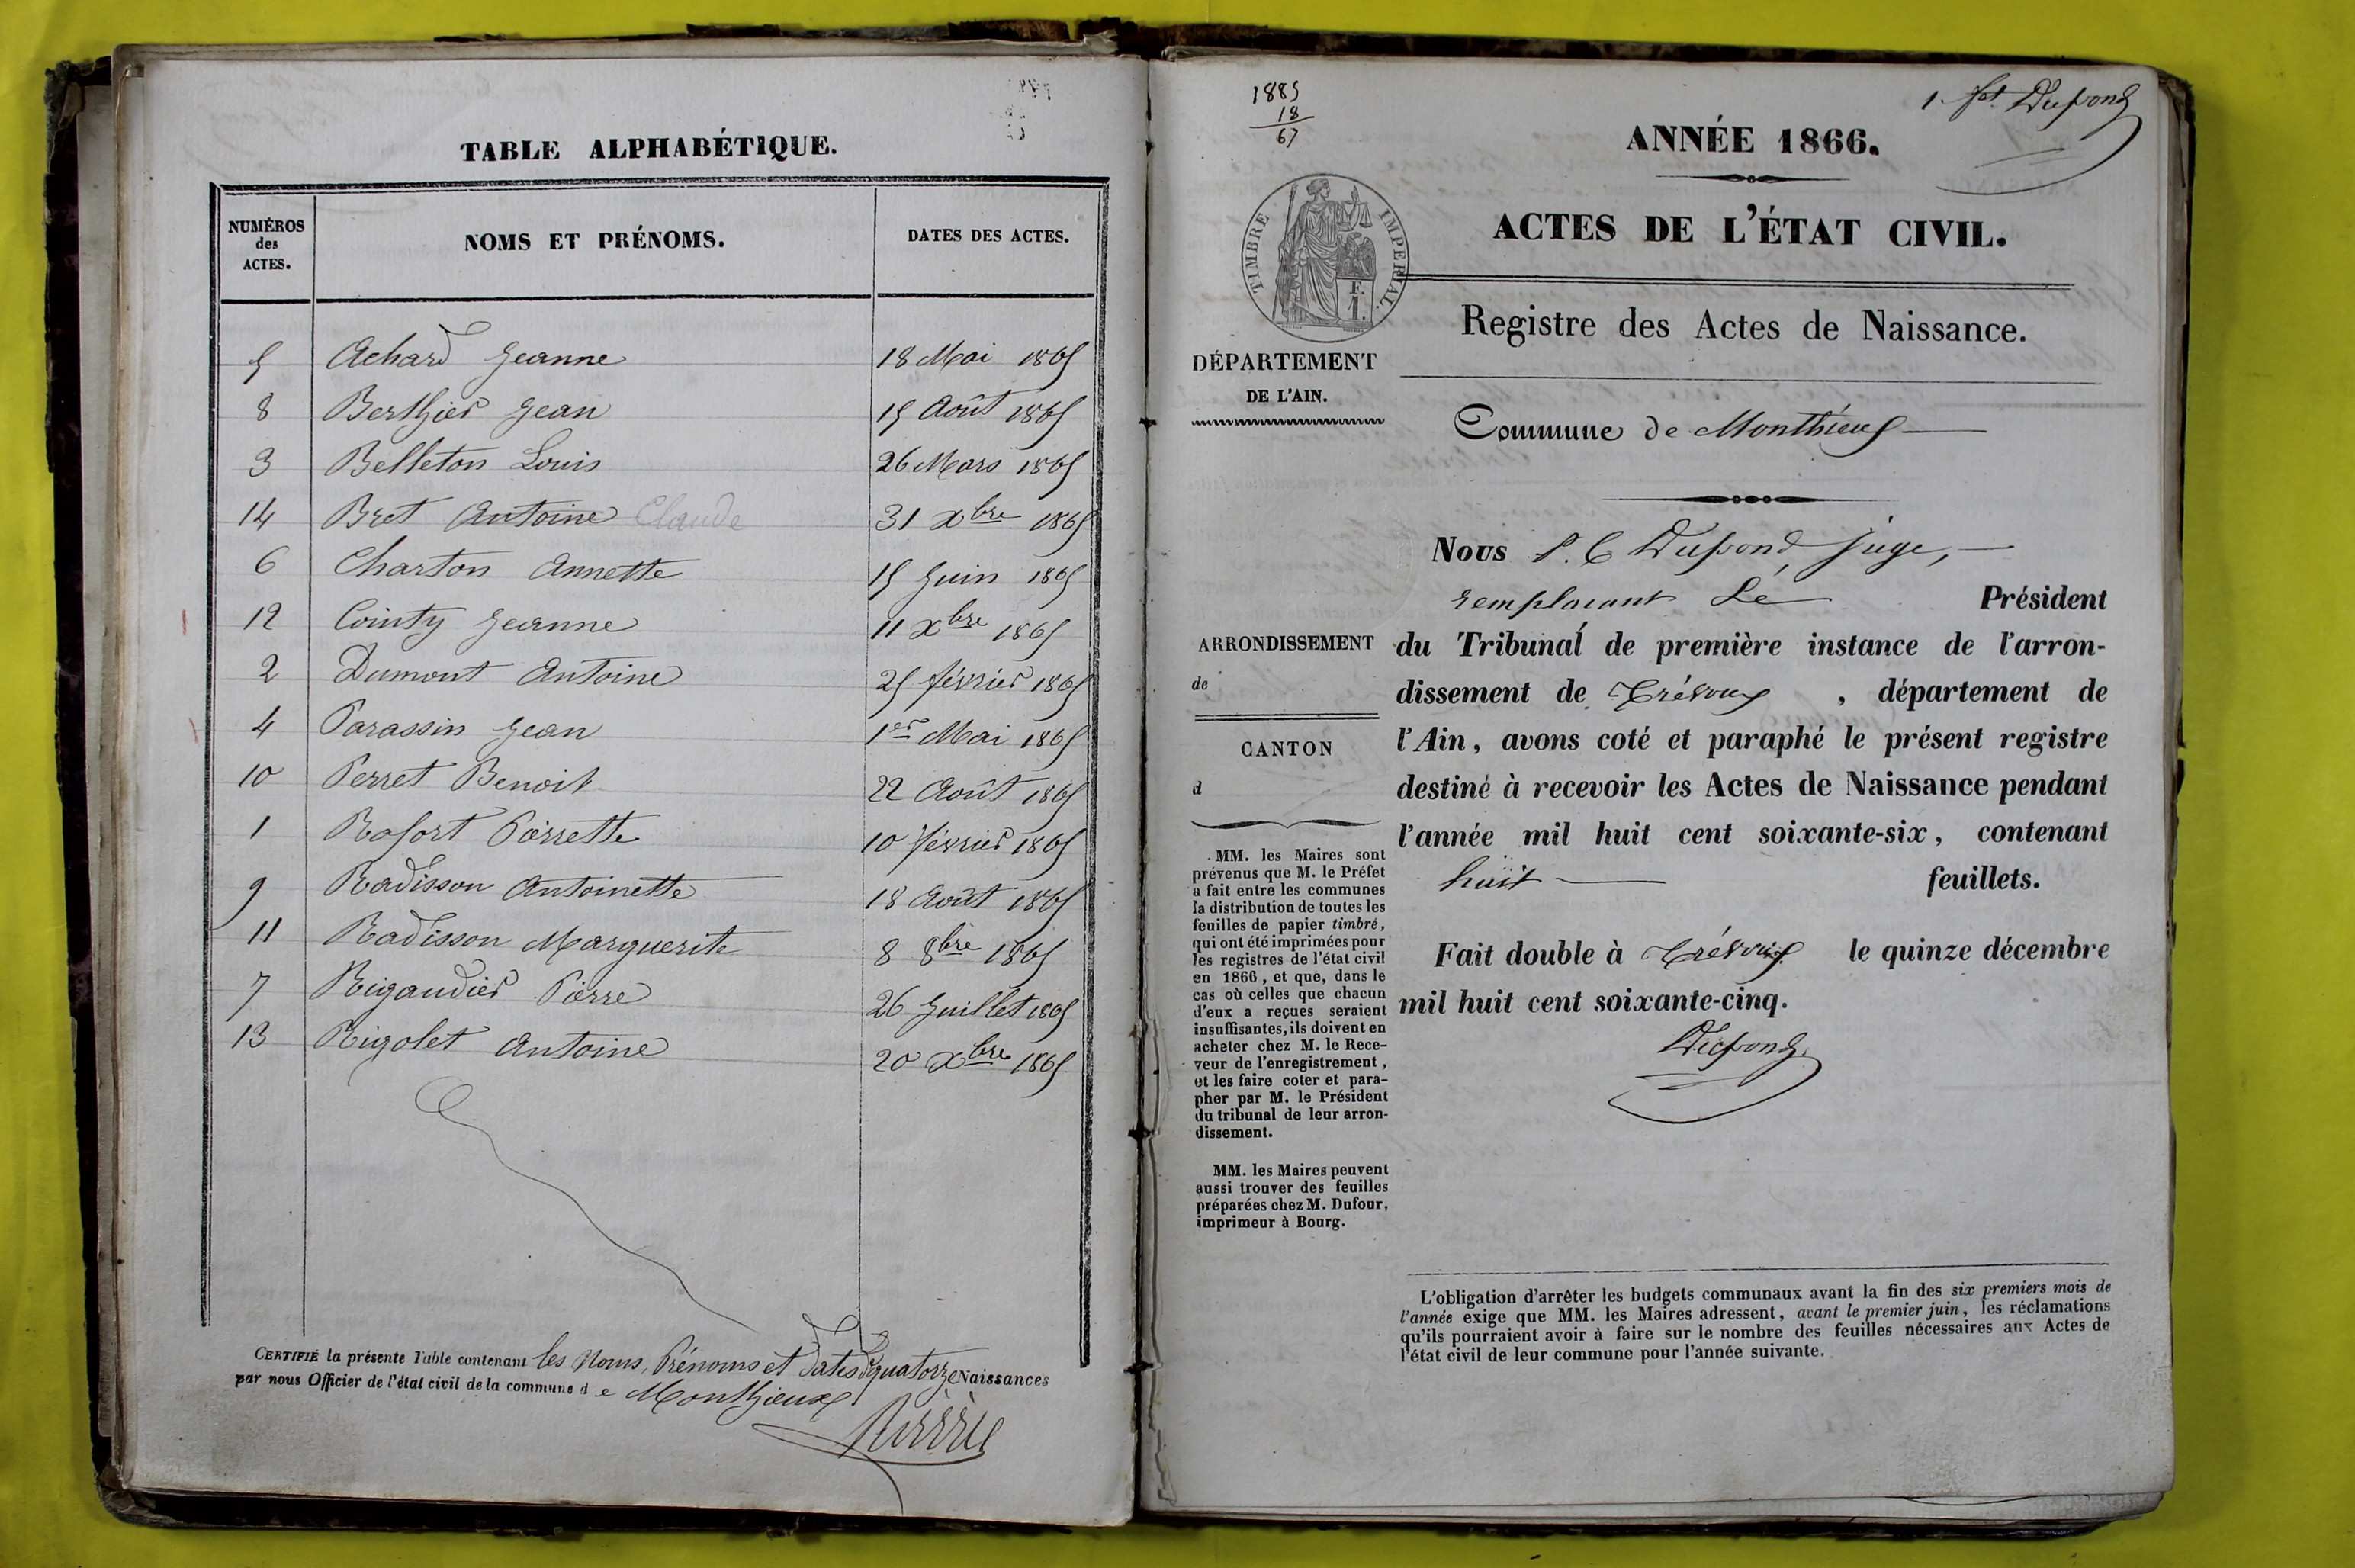 TABLE ALPHABÉTIQUE.
NUMÉROS des ACTES.
NOMS ET PRÉNOMS.
DATES DES ACTES.
5 Achard Jeanne 18 Mai 1865
8 Berthier Jean 15 Août 1865
3 Belleton Louis 26 Mars 1865
14 Bret Antoine Claude 31 Xbre 1865
6 Charton Annette 15 Juin 1865
12 Cointy Jeanne 11 Xbre 1865
2 Dumont Antoine 25 février 1865
4 Parassin Jean 1er Mai 1865
10 Perret Benoit 22 Août 1865
1 Rafort Pierrette 10 février 1865
9 Radisson Antoinette 18 Août 1865
11 Radisson Marguerite 8 8bre 1865
7 Rigaudier Pierre 26 Juillet 1865
13 Rigolet Antoine 20 Xbre 1865
CERTIFIÉ la présente Table contenant les Noms, Prénoms et dates de quatorze Naissances
par nous Officier de l'état civil de la commune de Monthieux
1885
18
67
1. ft. Dupond
ANNÉE 1866.
TIMBRE IMPERIAL.
F.
1.
ACTES DE L'ÉTAT CIVIL.
Registre des Actes de Naissance.
DÉPARTEMENT
DE L'AIN.
Commune de Monthieux
Nous P. C Dupond, juge,
remplacant Le Président
du Tribunal de première instance de l'arron-
dissement de Trévoux, département de
l'Ain, avons coté et paraphé le présent registre
destiné à recevoir les Actes de Naissance pendant
l'année mil huit cent soixante-six, contenant
huit feuillets.
Fait double à Trévoux le quinze décembre
mil huit cent soixante-cinq.
Dupond
ARRONDISSEMENT
de
CANTON
d
MM. les Maires sont
prévenus que M. le Préfet
a fait entre les communes
la distribution de toutes les
feuilles de papier timbré,
qui ont été imprimées pour
les registres de l'état civil
en 1866, et que, dans le
cas où celles que chacun
d'eux a reçues seraient
insuffisantes, ils doivent en
acheter chez M. le Rece-
veur de l'enregistrement,
et les faire coter et para-
pher par M. le Président
du tribunal de leur arron-
dissement.
MM. les Maires peuvent
aussi trouver des feuilles
préparées chez M. Dufour,
imprimeur à Bourg.
L'obligation d'arrêter les budgets communaux avant la fin des six premiers mois de
l'année exige que MM. les Maires adressent, avant le premier juin, les réclamations
qu'ils pourraient avoir à faire sur le nombre des feuilles nécessaires aux Actes de
l'état civil de leur commune pour l'année suivante.